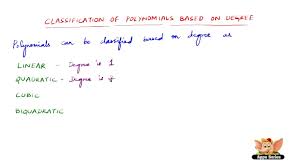 CLASSIFICATION OF POLYNOMIALS BASED ON DEGREE
Polynomials can be classified based on degree as
LINEAR - Degree is 1
QUADRATIC - Degree is
CUBIC
BIQUADRATIC
Appu Series